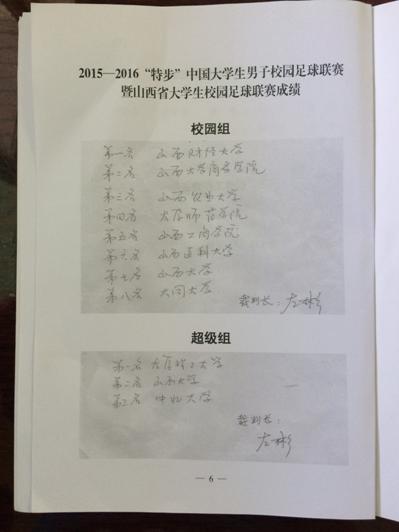 2015—2016 “特步” 中国大学生男子校园足球联赛
暨山西省大学生校园足球联赛成绩
校园组
第一名 山西财经大学
第二名 山西大学商务学院
第三名 山西农业大学
第四名 太原师范学院
第五名 山西工商学院
第六名 山西医科大学
第七名 山西大学
第八名 大同大学
裁判长：左彬
超级组
第一名 太原理工大学
第二名 山西大学
第三名 中北大学
裁判长：
左彬
— 6 —